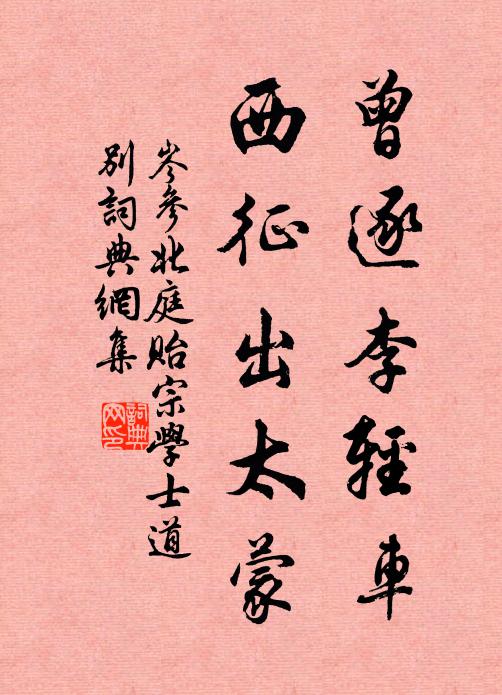 曾逐李輕車
西征出太蒙
岑參北庭貽宗學士道
別詞典網集
詞典網印